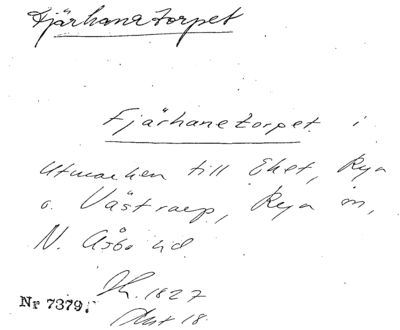 Fjärhanetorpet
Fjärhanetorpet i
utmarken till Ehet, Rya
o. Västraup, Rya sn,
N. Åsbo hd
Jh. 1827
Akt 18.
Nr 7379.